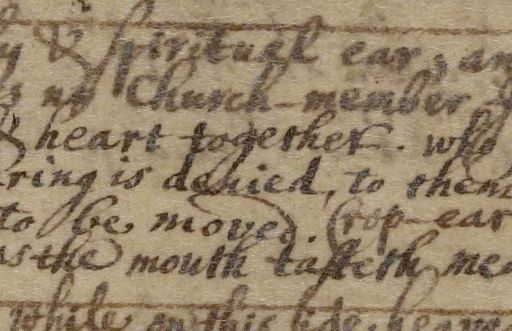 y & spiritual ear; an
s no Church-member
& heart together. who
ring is denied, to them
to be moved. Crop-ear
as the mouth tasteth mea
while on this side he